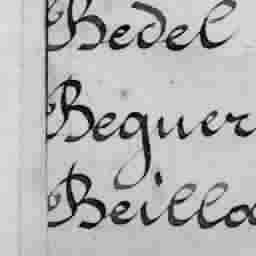 Bedel
Beguer
Beilla